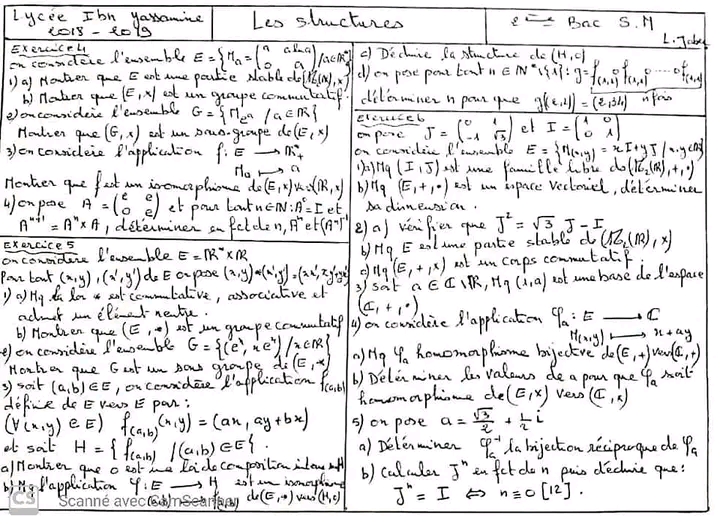 Lycée Ibn Yassamine
2018 - 2019
Les structures
2ème Bac S.M
L. Jaber
Exercice 4
on considère l'ensemble E = { Ma = (a alna / 0 a) / a∈ℝ*+ }
1) a) Montrer que E est une partie stable de (M2(ℝ), ×)
b) Montrer que (E, ×) est un groupe commutatif.
2) on considère l'ensemble G = { Me^a / a∈ℝ }
Montrer que (G, ×) est un sous-groupe de (E, ×)
3) on considère l'application f: E → ℝ*+
Ma ↦ a
Montrer que f est un isomorphisme de (E, ×) vers (ℝ, ×)
4) on pose A = (e e / 0 e) et pour tout n∈ℕ: A⁰ = I et
Aⁿ⁺¹ = Aⁿ × A, déterminer en fct de n, Aⁿ et (Aⁿ)⁻¹
Exercice 5
on considère l'ensemble E = ℝ* × ℝ
Pour tout (x,y), (x',y') de E on pose (x,y)*(x',y') =
1) a) Mq la loi * est commutative, associative et
admet un élément neutre.
b) Montrer que (E, *) est un groupe commutatif
2) on considère l'ensemble G = {(eˣ, xeˣ) / x∈ℝ}
Montrer que G est un sous groupe de (E, *)
3) soit (a,b) ∈ E, on considère l'application f(a,b)
définie de E vers E par:
(∀(x,y) ∈ E) f(a,b)(x,y) = (ax, ay+bx)
et soit H = { f(a,b) / (a,b) ∈ E }.
a) Montrer que o est une loi de composition interne sur H
b) Mq l'application φ: E → H est un isomorphisme
(a,b) ↦ f(a,b) de (E, *) vers (H, o)
c) Déduire la structure de (H, o)
d) on pose pour tout n ∈ ℕ*\{1}: g = f(1,1) o f(1,1) o ---- o f(1,1)
n fois
déterminer n pour que g((2,1)) = (2,34)
Exercice 6
on pose J = (0 1 / -1 √3) et I = (1 0 / 0 1)
on considère l'ensemble E = { M(x,y) = xI + yJ / x,y∈ℝ }
1) a) Mq (I, J) est une famille libre de (M2(ℝ), +, ·)
b) Mq (E, +, ·) est un espace vectoriel, déterminer
sa dimension.
2) a) vérifier que J² = √3 J - I
b) Mq E est une partie stable de (M2(ℝ), ×)
c) Mq (E, +, ×) est un corps commutatif.
3) soit a ∈ ℂ\ℝ, Mq (1,a) est une base de l'espace
(ℂ, +, ·)
4) on considère l'application φa : E → ℂ
M(x,y) ↦ x + ay
a) Mq φa homomorphisme bijective de (E, +) vers (ℂ, +)
b) Déterminer les valeurs de a pour que φa soit
homomorphisme de (E, ×) vers (ℂ, ×)
5) on pose a = √3/2 + 1/2 i
a) Déterminer φa⁻¹ la bijection réciproque de φa
b) Calculer Jⁿ en fct de n puis déduire que:
Jⁿ = I ⇔ n ≡ 0 [12].
CS Scanné avec CamScanner